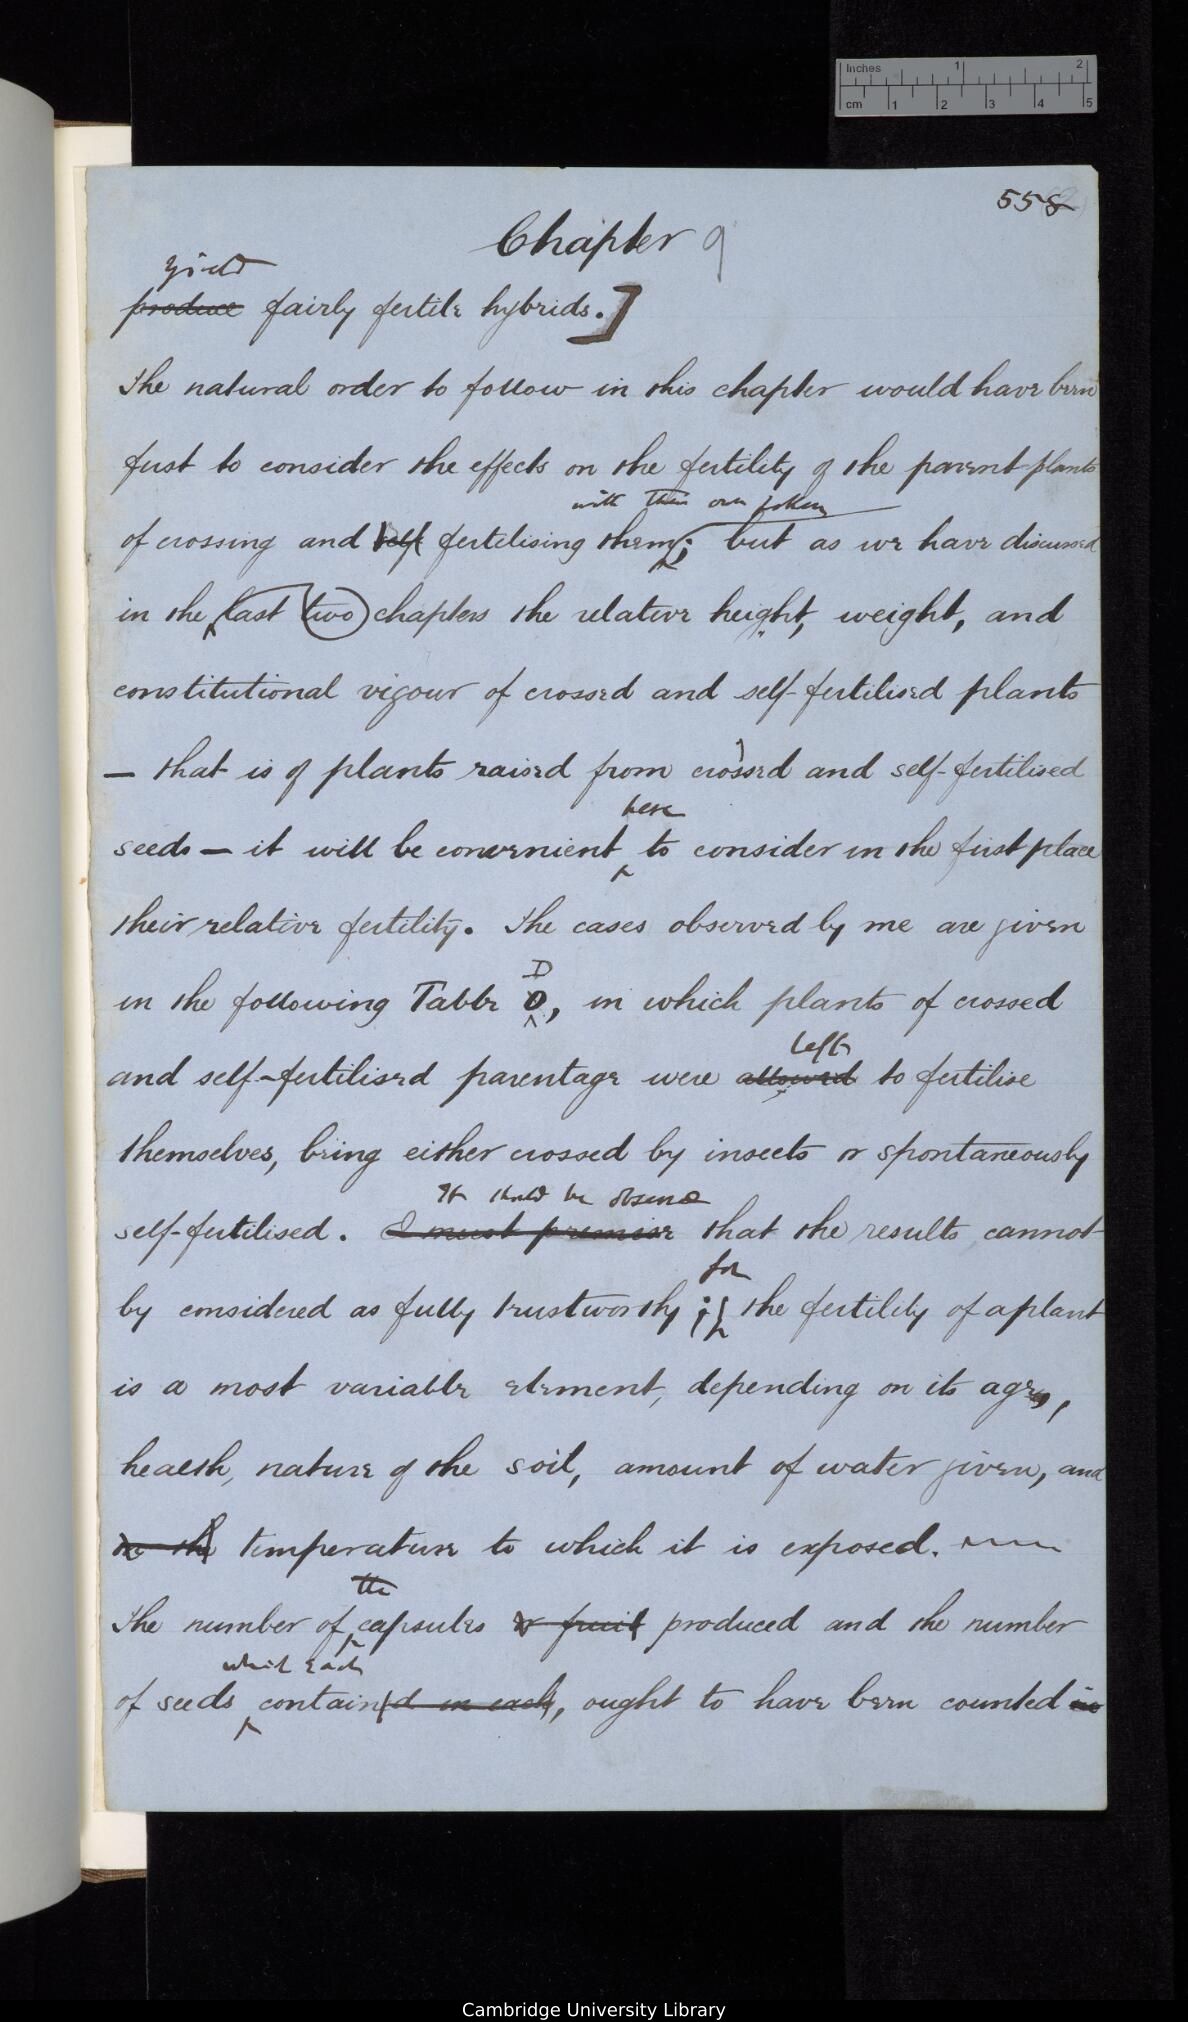 Inches 1 2
cm 1 2 3 4 5
558
Chapter 9
yield
produce fairly fertile hybrids.]
The natural order to follow in this chapter would have been
first to consider the effects on the fertility of the parent-plants
with their own pollen
of crossing and self fertilising them; but as we have discussed
in the last two chapters the relative height, weight, and
constitutional vigour of crossed and self-fertilised plants
— that is of plants raised from crossed and self-fertilised
here
seeds — it will be convenient to consider in the first place
their relative fertility. The cases observed by me are given
D
in the following Table O, in which plants of crossed
left
and self-fertilised parentage were allowed to fertilise
themselves, being either crossed by insects or spontaneously
It should be observed
self-fertilised. I must premise that the results cannot
for
by considered as fully trustworthy; the fertility of a plant
is a most variable element, depending on its age,
health, nature of the soil, amount of water given, and
temperature to which it is exposed.
the
The number of capsules or fruit produced and the number
which each
of seeds contained in each, ought to have been counted in
Cambridge University Library